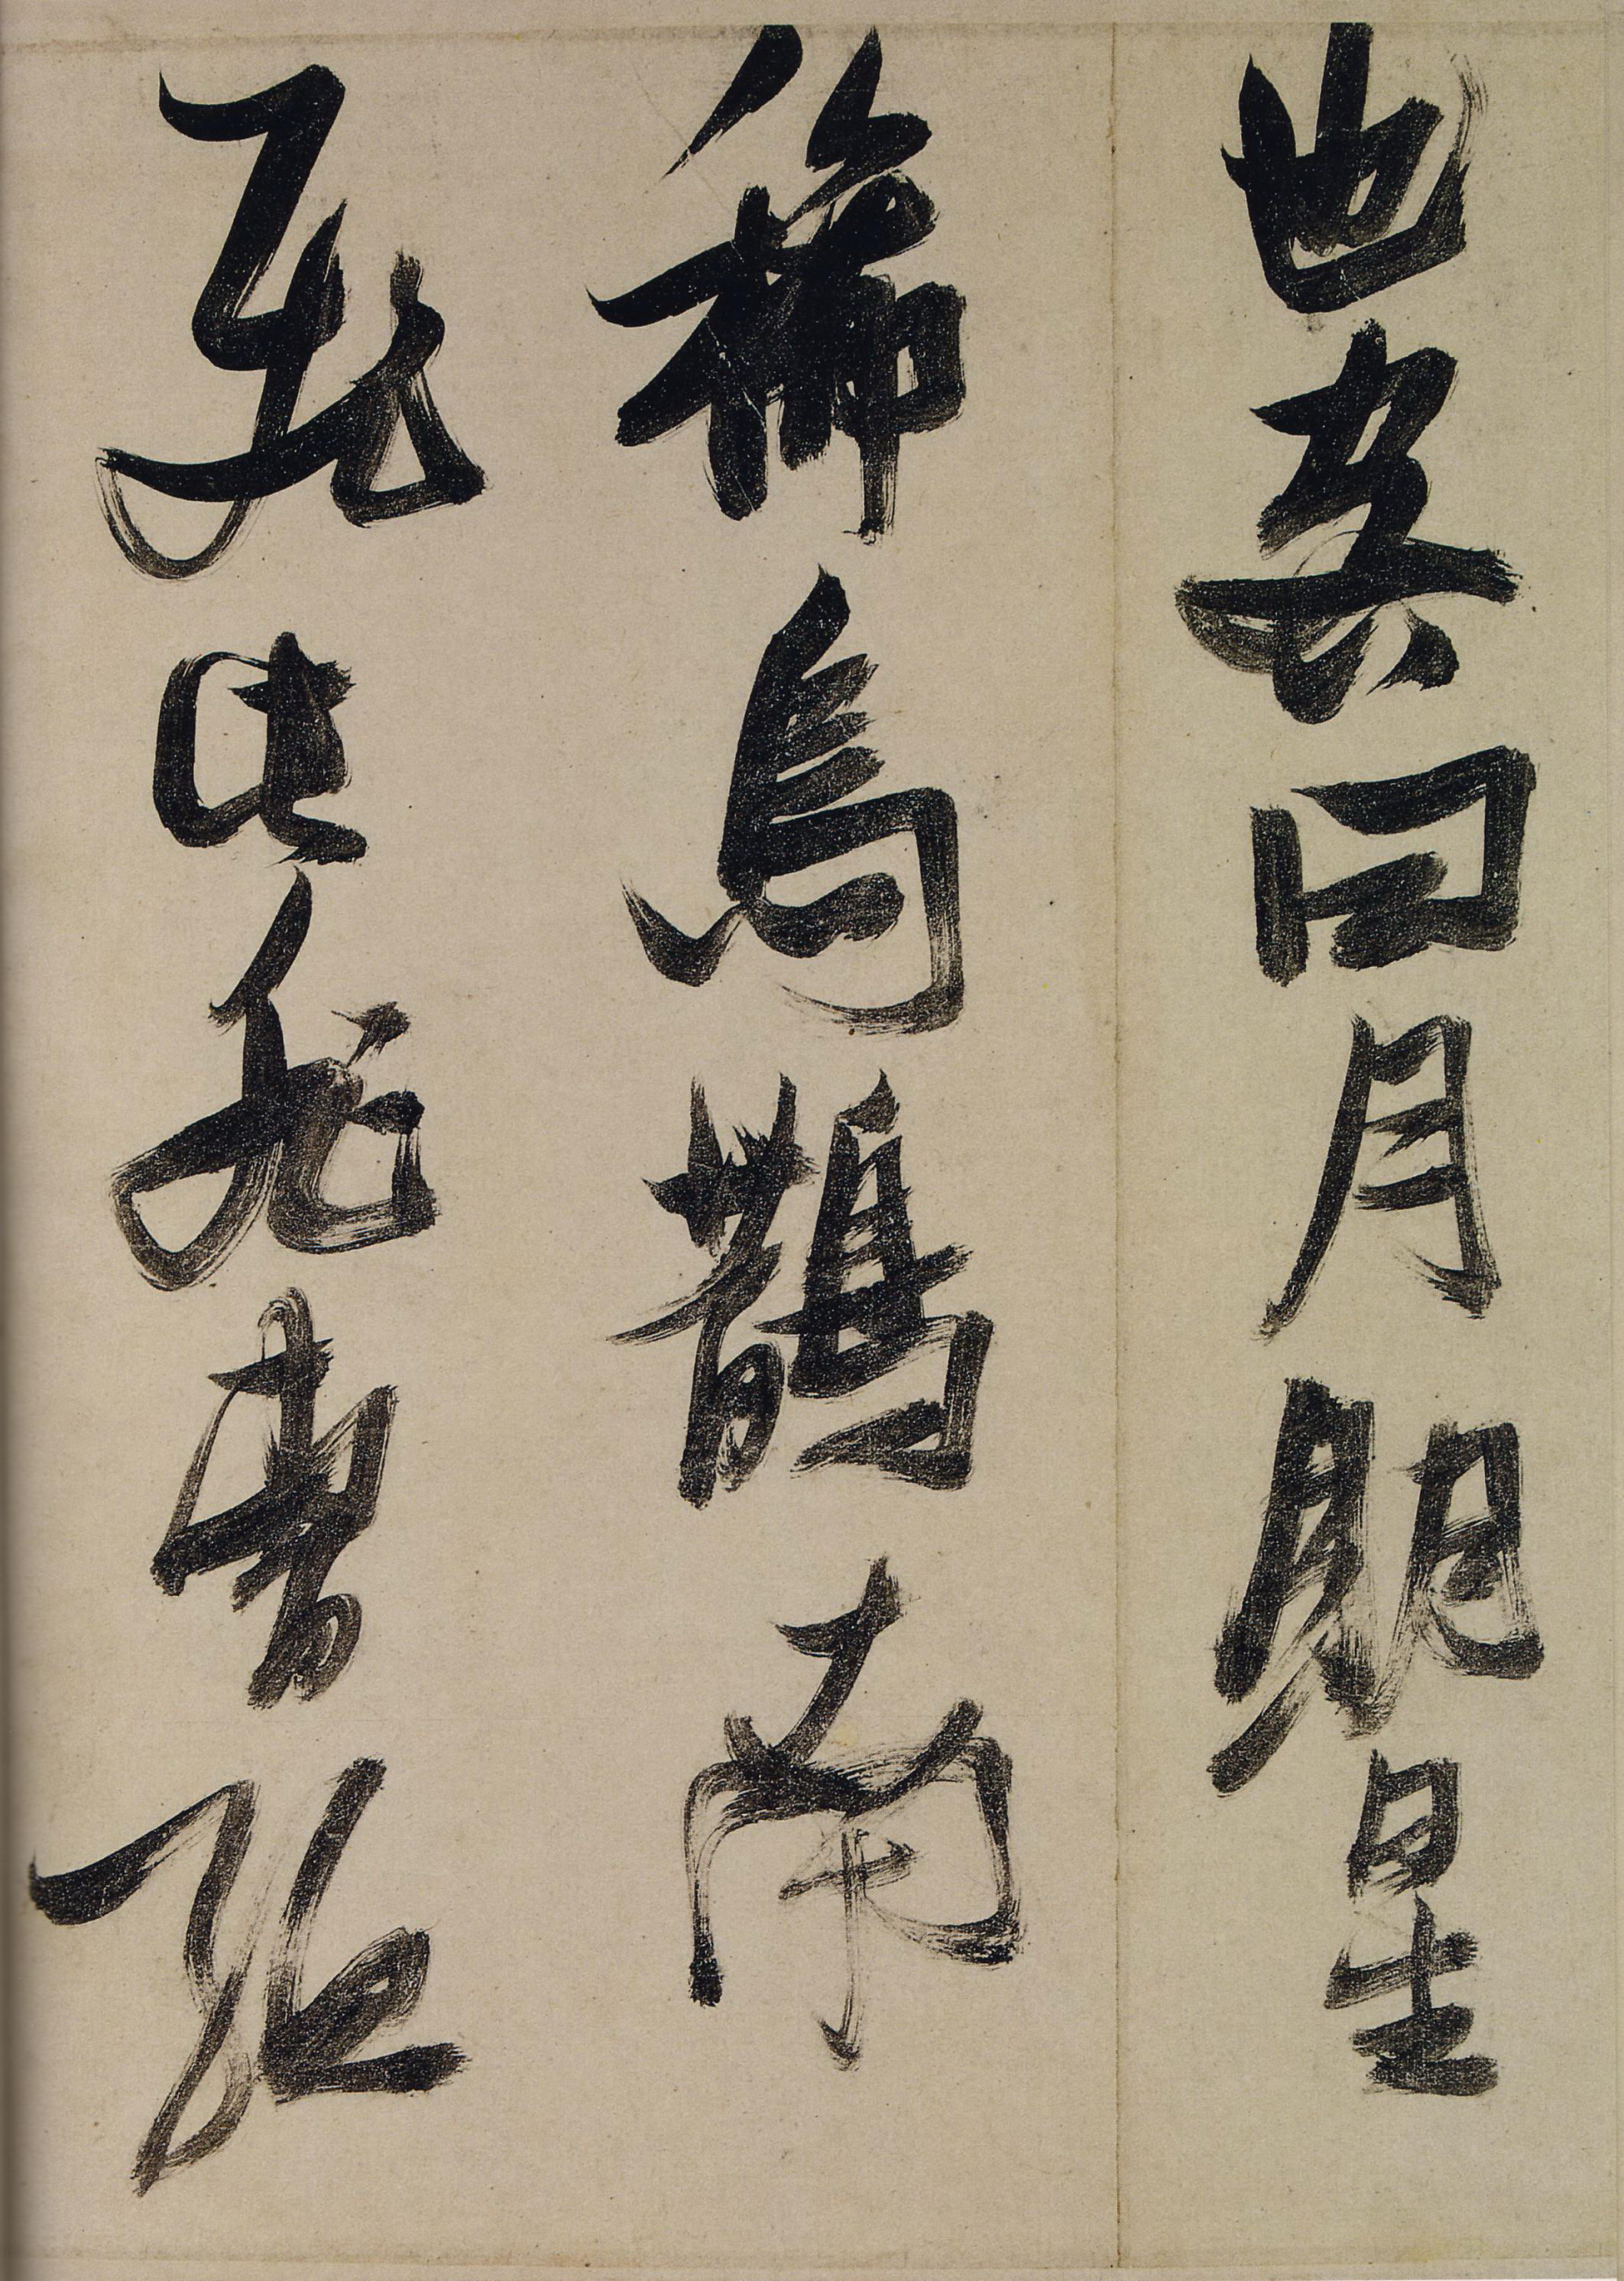 也客曰月明星
稀烏鵲南
飛此非曹孟